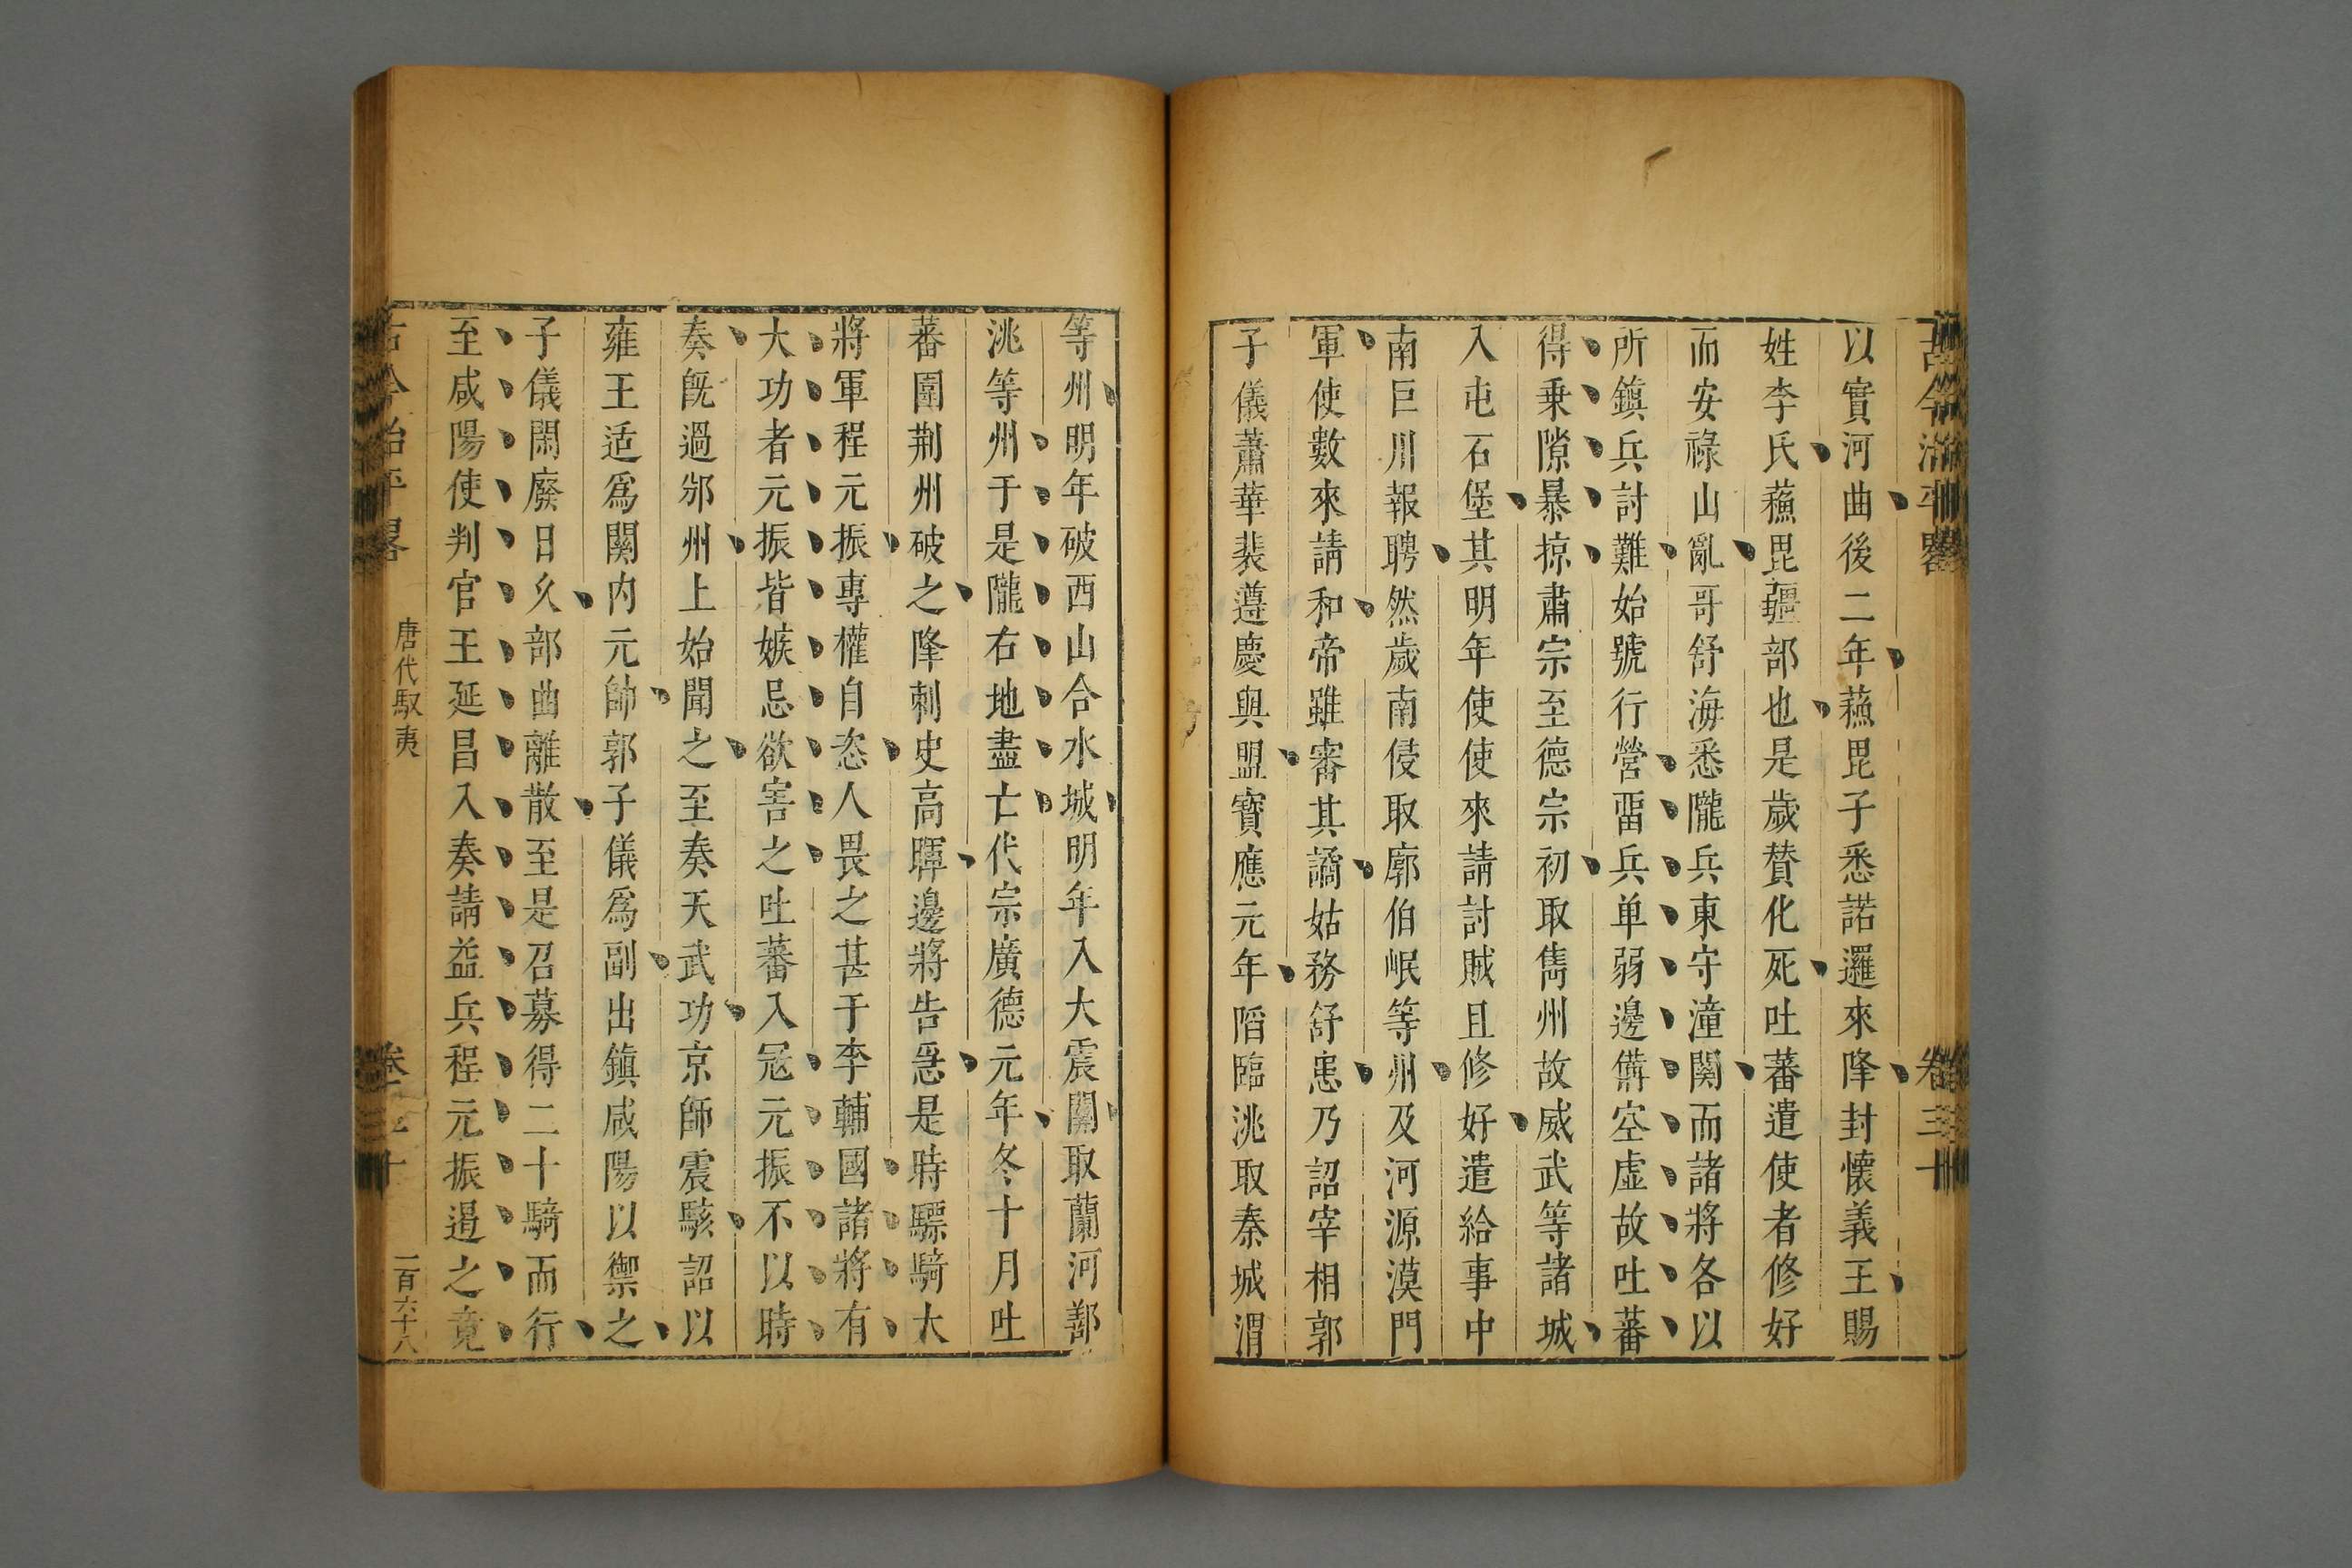 古今治平畧 卷三十
以實河曲後二年蘓毘子悉諾邏來降封懷義王賜
姓李氏蘓毘疆部也是歲賛化死吐蕃遣使者修好
而安祿山亂哥舒海悉隴兵東守潼關而諸將各以
所鎮兵討難始號行營畱兵单弱邊備空虛故吐蕃
得乗隙暴掠肅宗至德宗初取雋州故威武等諸城
入屯石堡其明年使使來請討賊且修好遣給事中
南巨川報聘然歲南侵取廓伯岷等州及河源漠門
軍使數來請和帝雖審其譎姑務舒患乃詔宰相郭
子儀蕭華裴遵慶與盟寳應元年陷臨洮取秦城渭
等州明年破西山合水城明年入大震關取蘭河鄯
洮等州于是隴右地盡亡代宗廣德元年冬十月吐
蕃圍荆州破之降刺史高暉邊將告急是時驃騎大
將軍程元振專權自恣人畏之甚于李輔國諸將有
大功者元振皆嫉忌欲害之吐蕃入冦元振不以時
奏旣過邠州上始聞之至奏天武功京師震駭詔以
雍王适爲關内元帥郭子儀爲副出鎮咸陽以禦之
子儀閑廢日久部曲離散至是召募得二十騎而行
至咸陽使判官王延昌入奏請益兵程元振遏之竟
古今治平畧 唐代馭夷 卷三十 二百六十八